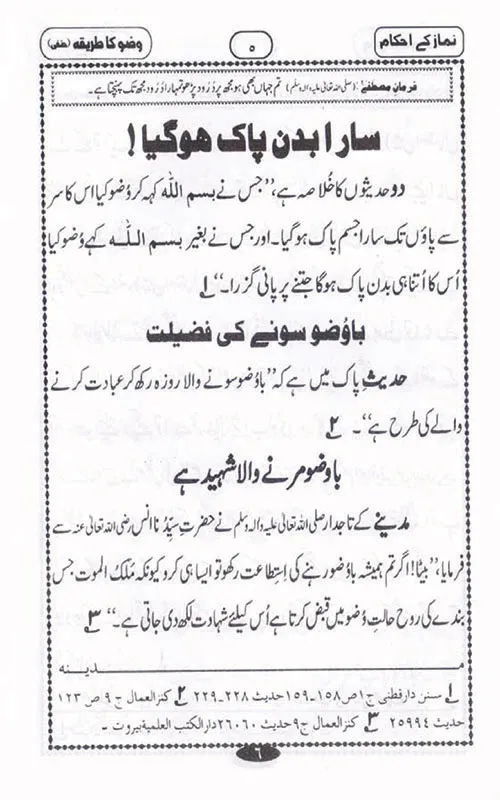 نماز کے احکام
۵
وضو کا طریقہ (حنفی)
فرمانِ مصطفےٰ: (صلی اللہ تعالیٰ علیہ والہ وسلم) تم جہاں بھی ہو مجھ پر دُرُود پڑھو تمہارا دُرُود مجھ تک پہنچتا ہے۔
سارا بدن پاک ہوگیا!
دو حدیثوں کا خُلاصہ ہے، ”جس نے بسم اللہ کہہ کر وُضو کیا اس کا سر
سے پاؤں تک سارا جسم پاک ہو گیا۔ اور جس نے بغیر بسم اللہ کہے وُضو کیا
اُس کا اُتنا ہی بدن پاک ہوگا جتنے پر پانی گزرا۔“ ۱
باوُضو سونے کی فضیلت
حدیثِ پاک میں ہے کہ ”باوُضو سونے والا روزہ رکھ کر عبادت کرنے
والے کی طرح ہے“۔ ۲
باوضو مرنے والا شہید ہے
مدینے کے تاجدار صلی اللہ تعالیٰ علیہ والہ وسلم نے حضرتِ سیِّدُنا انس رضی اللہ تعالیٰ عنہ سے
فرمایا، ”بیٹا! اگر تم ہمیشہ باوُضو رہنے کی اِستِطاعت رکھو تو ایسا ہی کرو کیونکہ مَلَکُ الموت جس
بندے کی روح حالتِ وُضو میں قبض کرتا ہے اُس کیلئے شہادت لکھ دی جاتی ہے۔“ ۳
مدینہ
۱ سنن دار قطنی ج۱ ص ۱۵۸۔۱۵۹ حدیث ۲۲۸۔۲۲۹ ۲ کنزالعمال ج ۹ ص ۱۲۳
حدیث ۲۵۹۹۴ ۳ کنزالعمال ج۹ حدیث ۲۶۰۶۰ دارالکتب العلمیة بیروت۔
٦